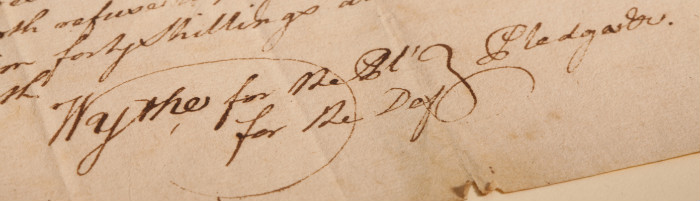 refuse
forty shillings
Wythe for the Pl'
for the Def
Pledges &c.